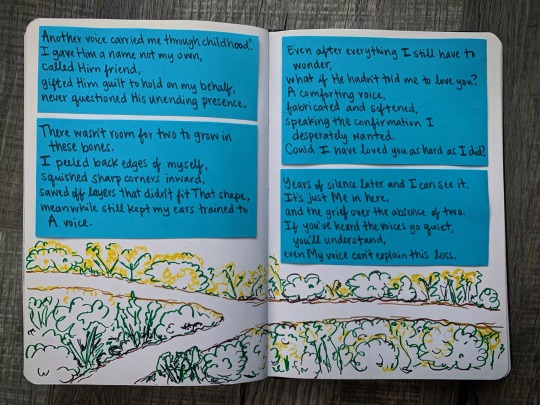 Another voice carried me through childhood.
I gave Him a name not my own,
called Him friend,
gifted Him guilt to hold on my behalf,
never questioned His unending presence.
There wasn't room for two to grow in
these bones.
I peeled back edges of myself,
squished sharp corners inward,
sawed off layers that didn't fit That shape,
meanwhile still kept my ears trained to
A voice.
Even after everything I still have to
wonder,
what if He hadn't told me to love you?
A comforting voice,
fabricated and softened,
speaking the confirmation I
desperately wanted.
Could I have loved you as hard as I did?
Years of silence later and I can see it.
It's just Me in here,
and the grief over the absence of two.
If you've heard the voices go quiet,
you'll understand,
even My voice can't explain this loss.